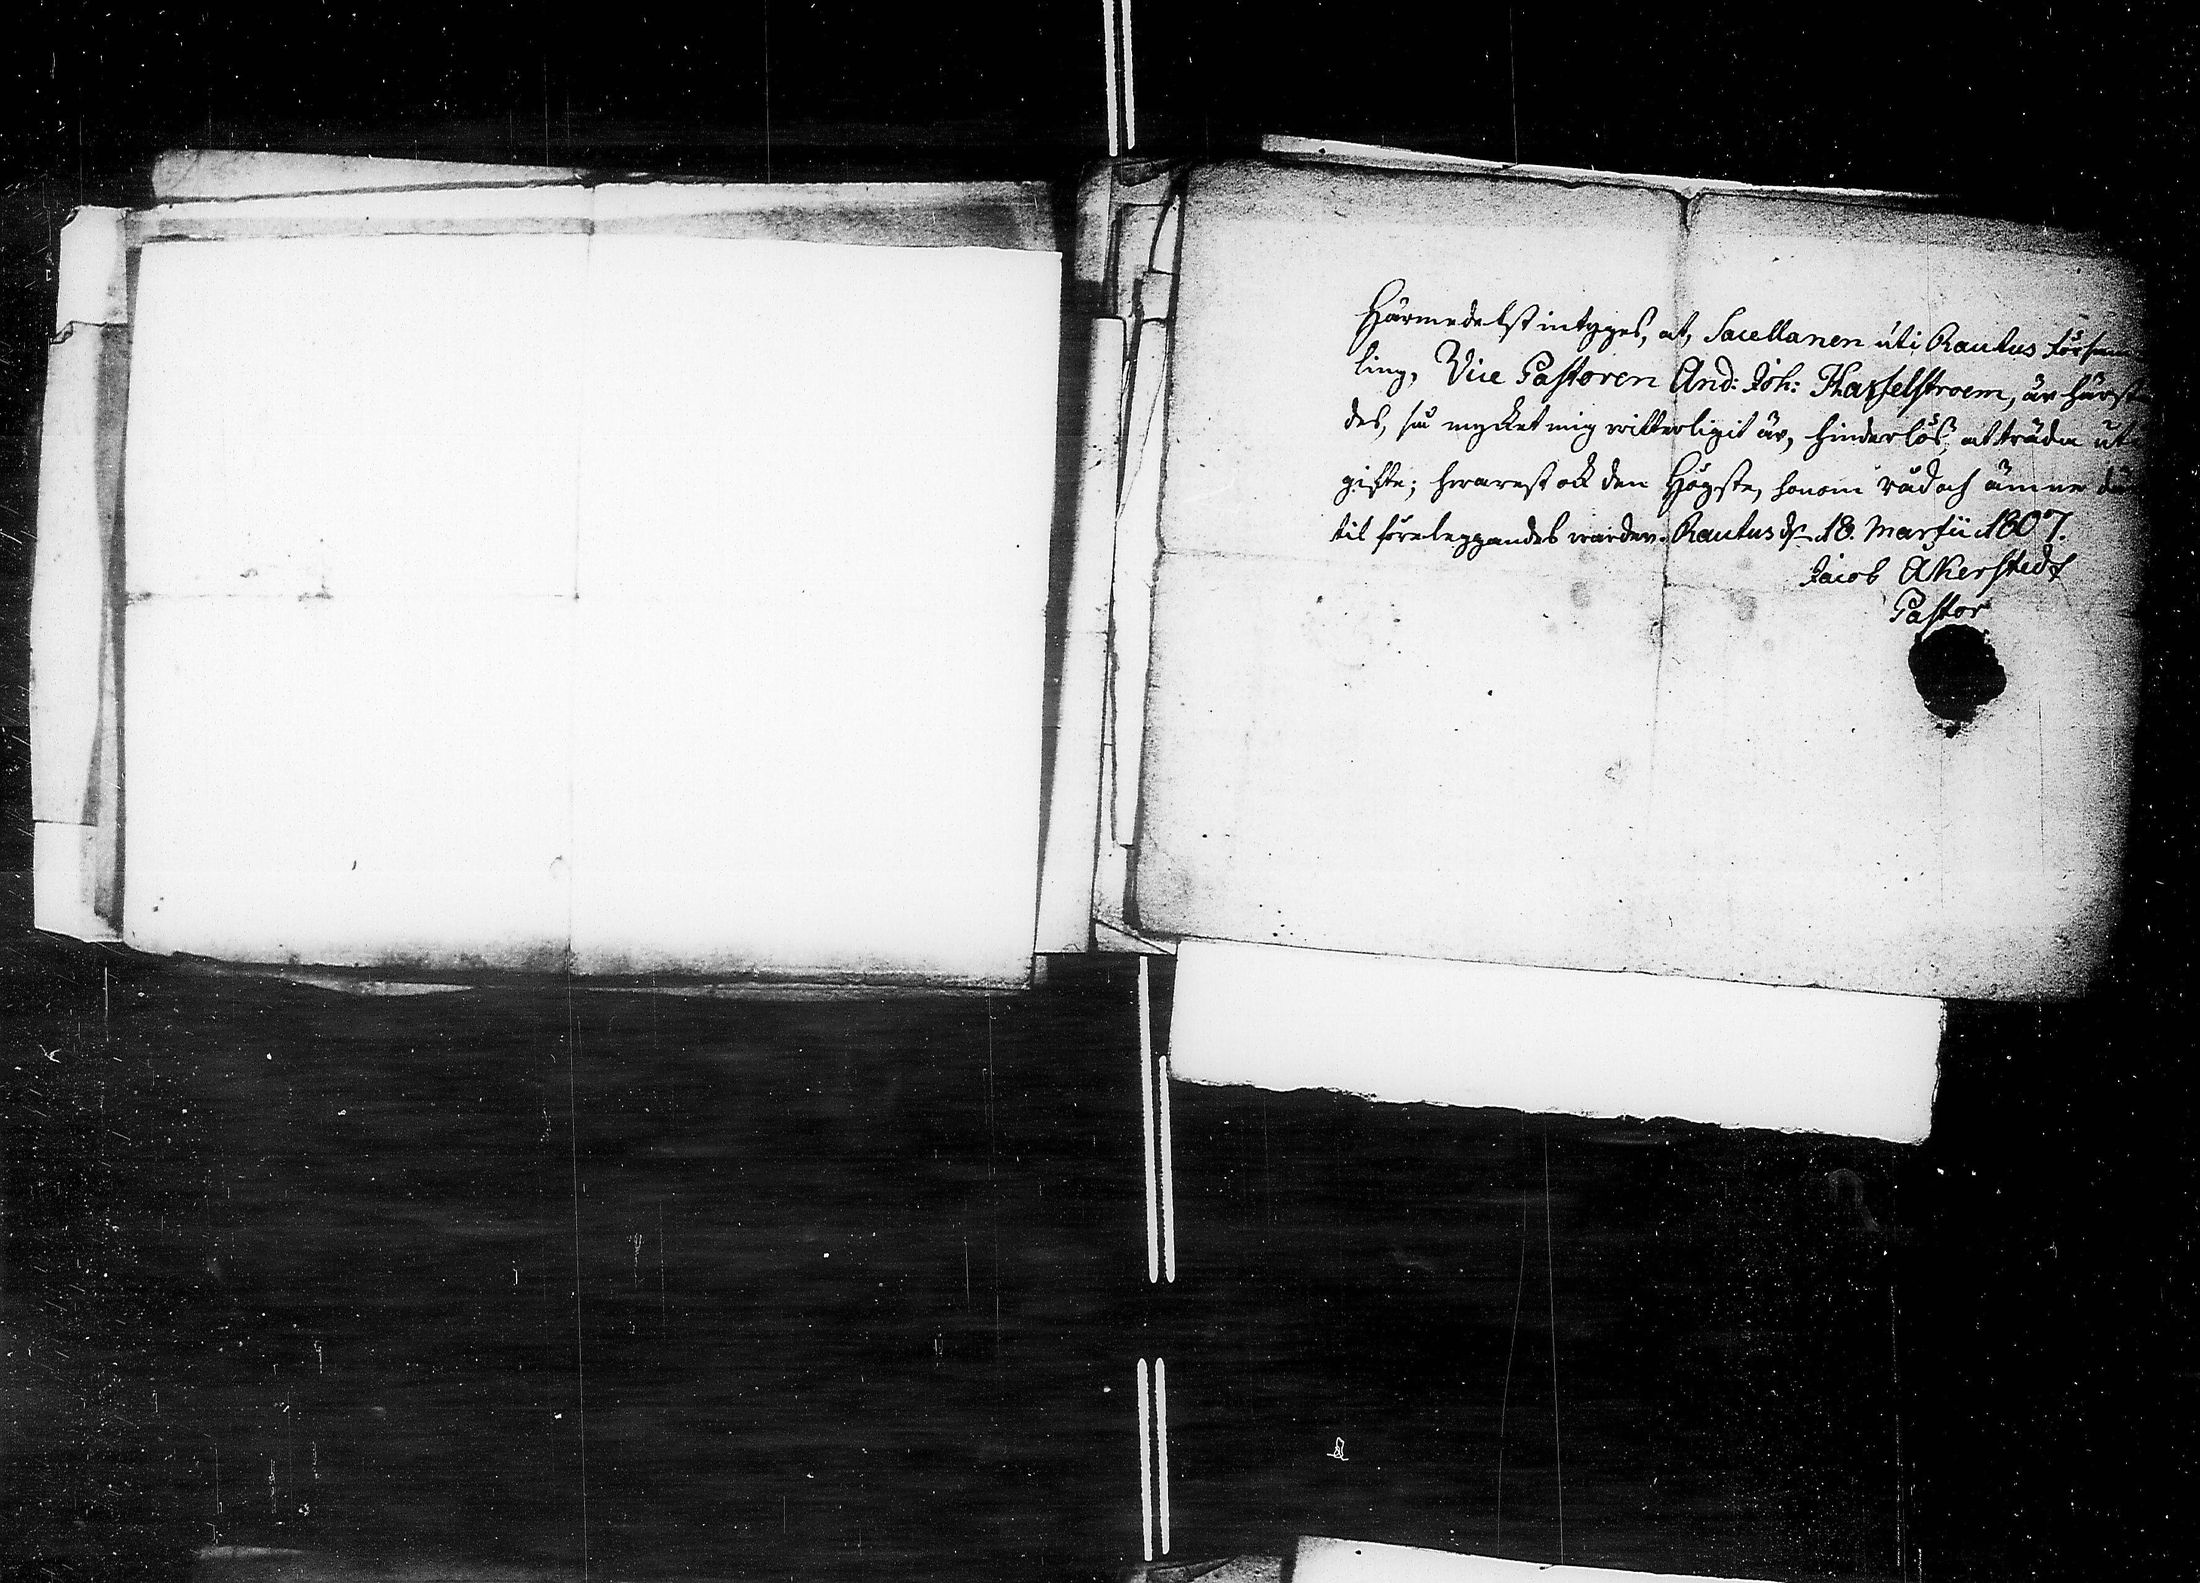 Härmedelst intyges, at, Sacellanen uti Rautus försam
ling, Vice Pastoren And: Joh: Hasselstroem, är härst
des, så mycket mig witterligit är, hinderlös, at träda ut
gifte; hwarest ock den Högste, honom råd och ämne där
til föreleggandes warder. Rautus d. 18. Martii 1807.
Jacob Åkerstedt
Pastor